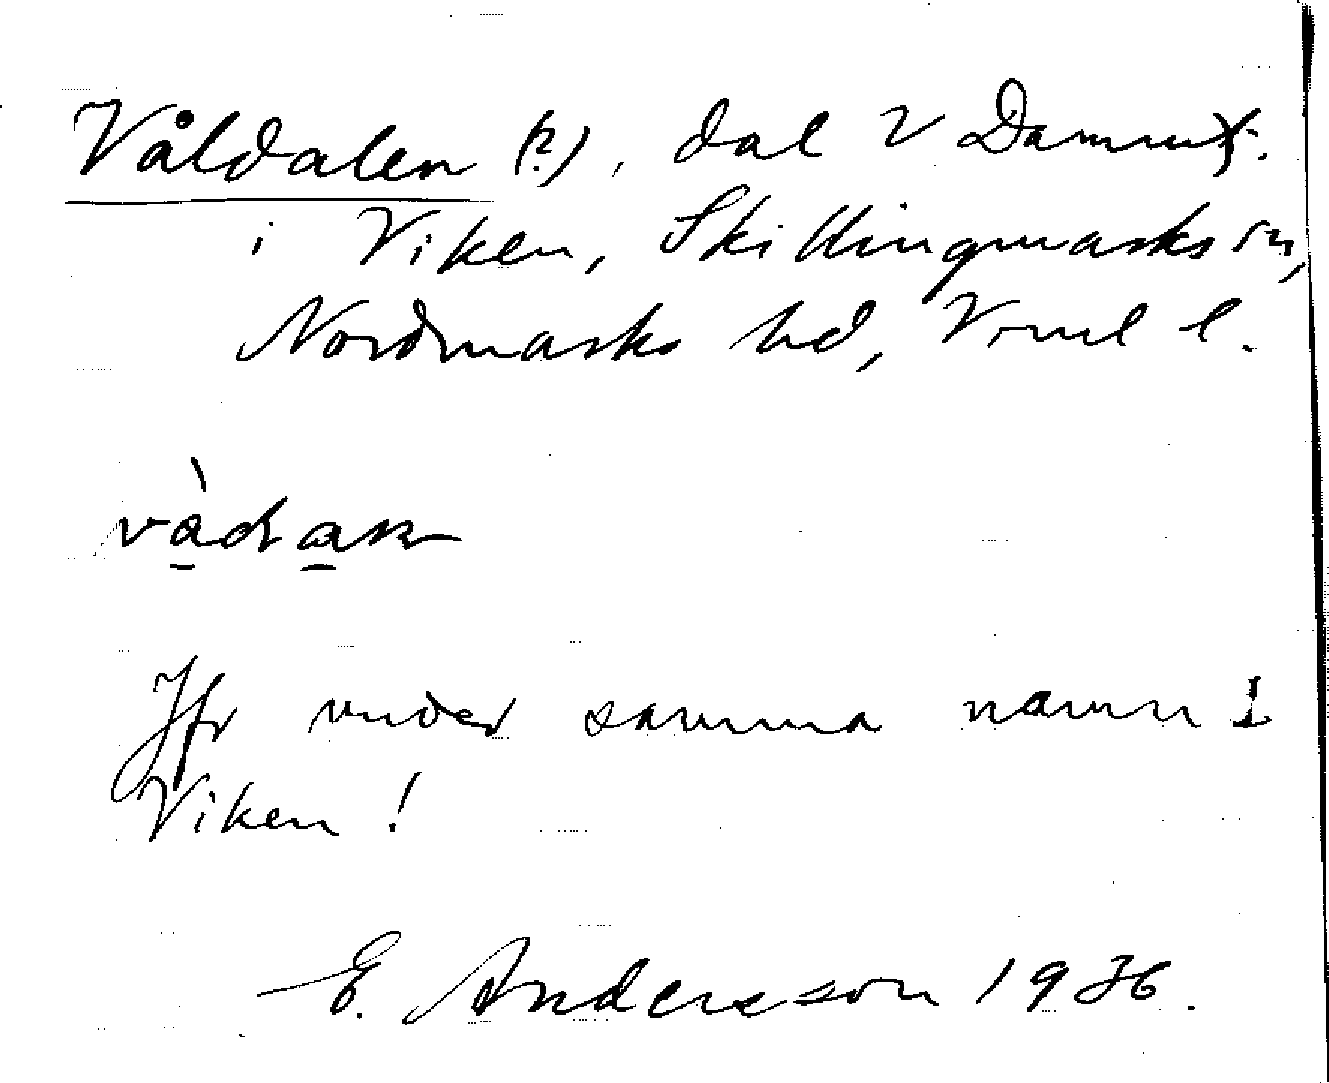 Våldalen (?), dal V Damm
i Viken, Skillingmarks sn,
Nordmarks hd, Vrml l.
Jfr under samma namn i
Viken!
E. Andersson 1936.